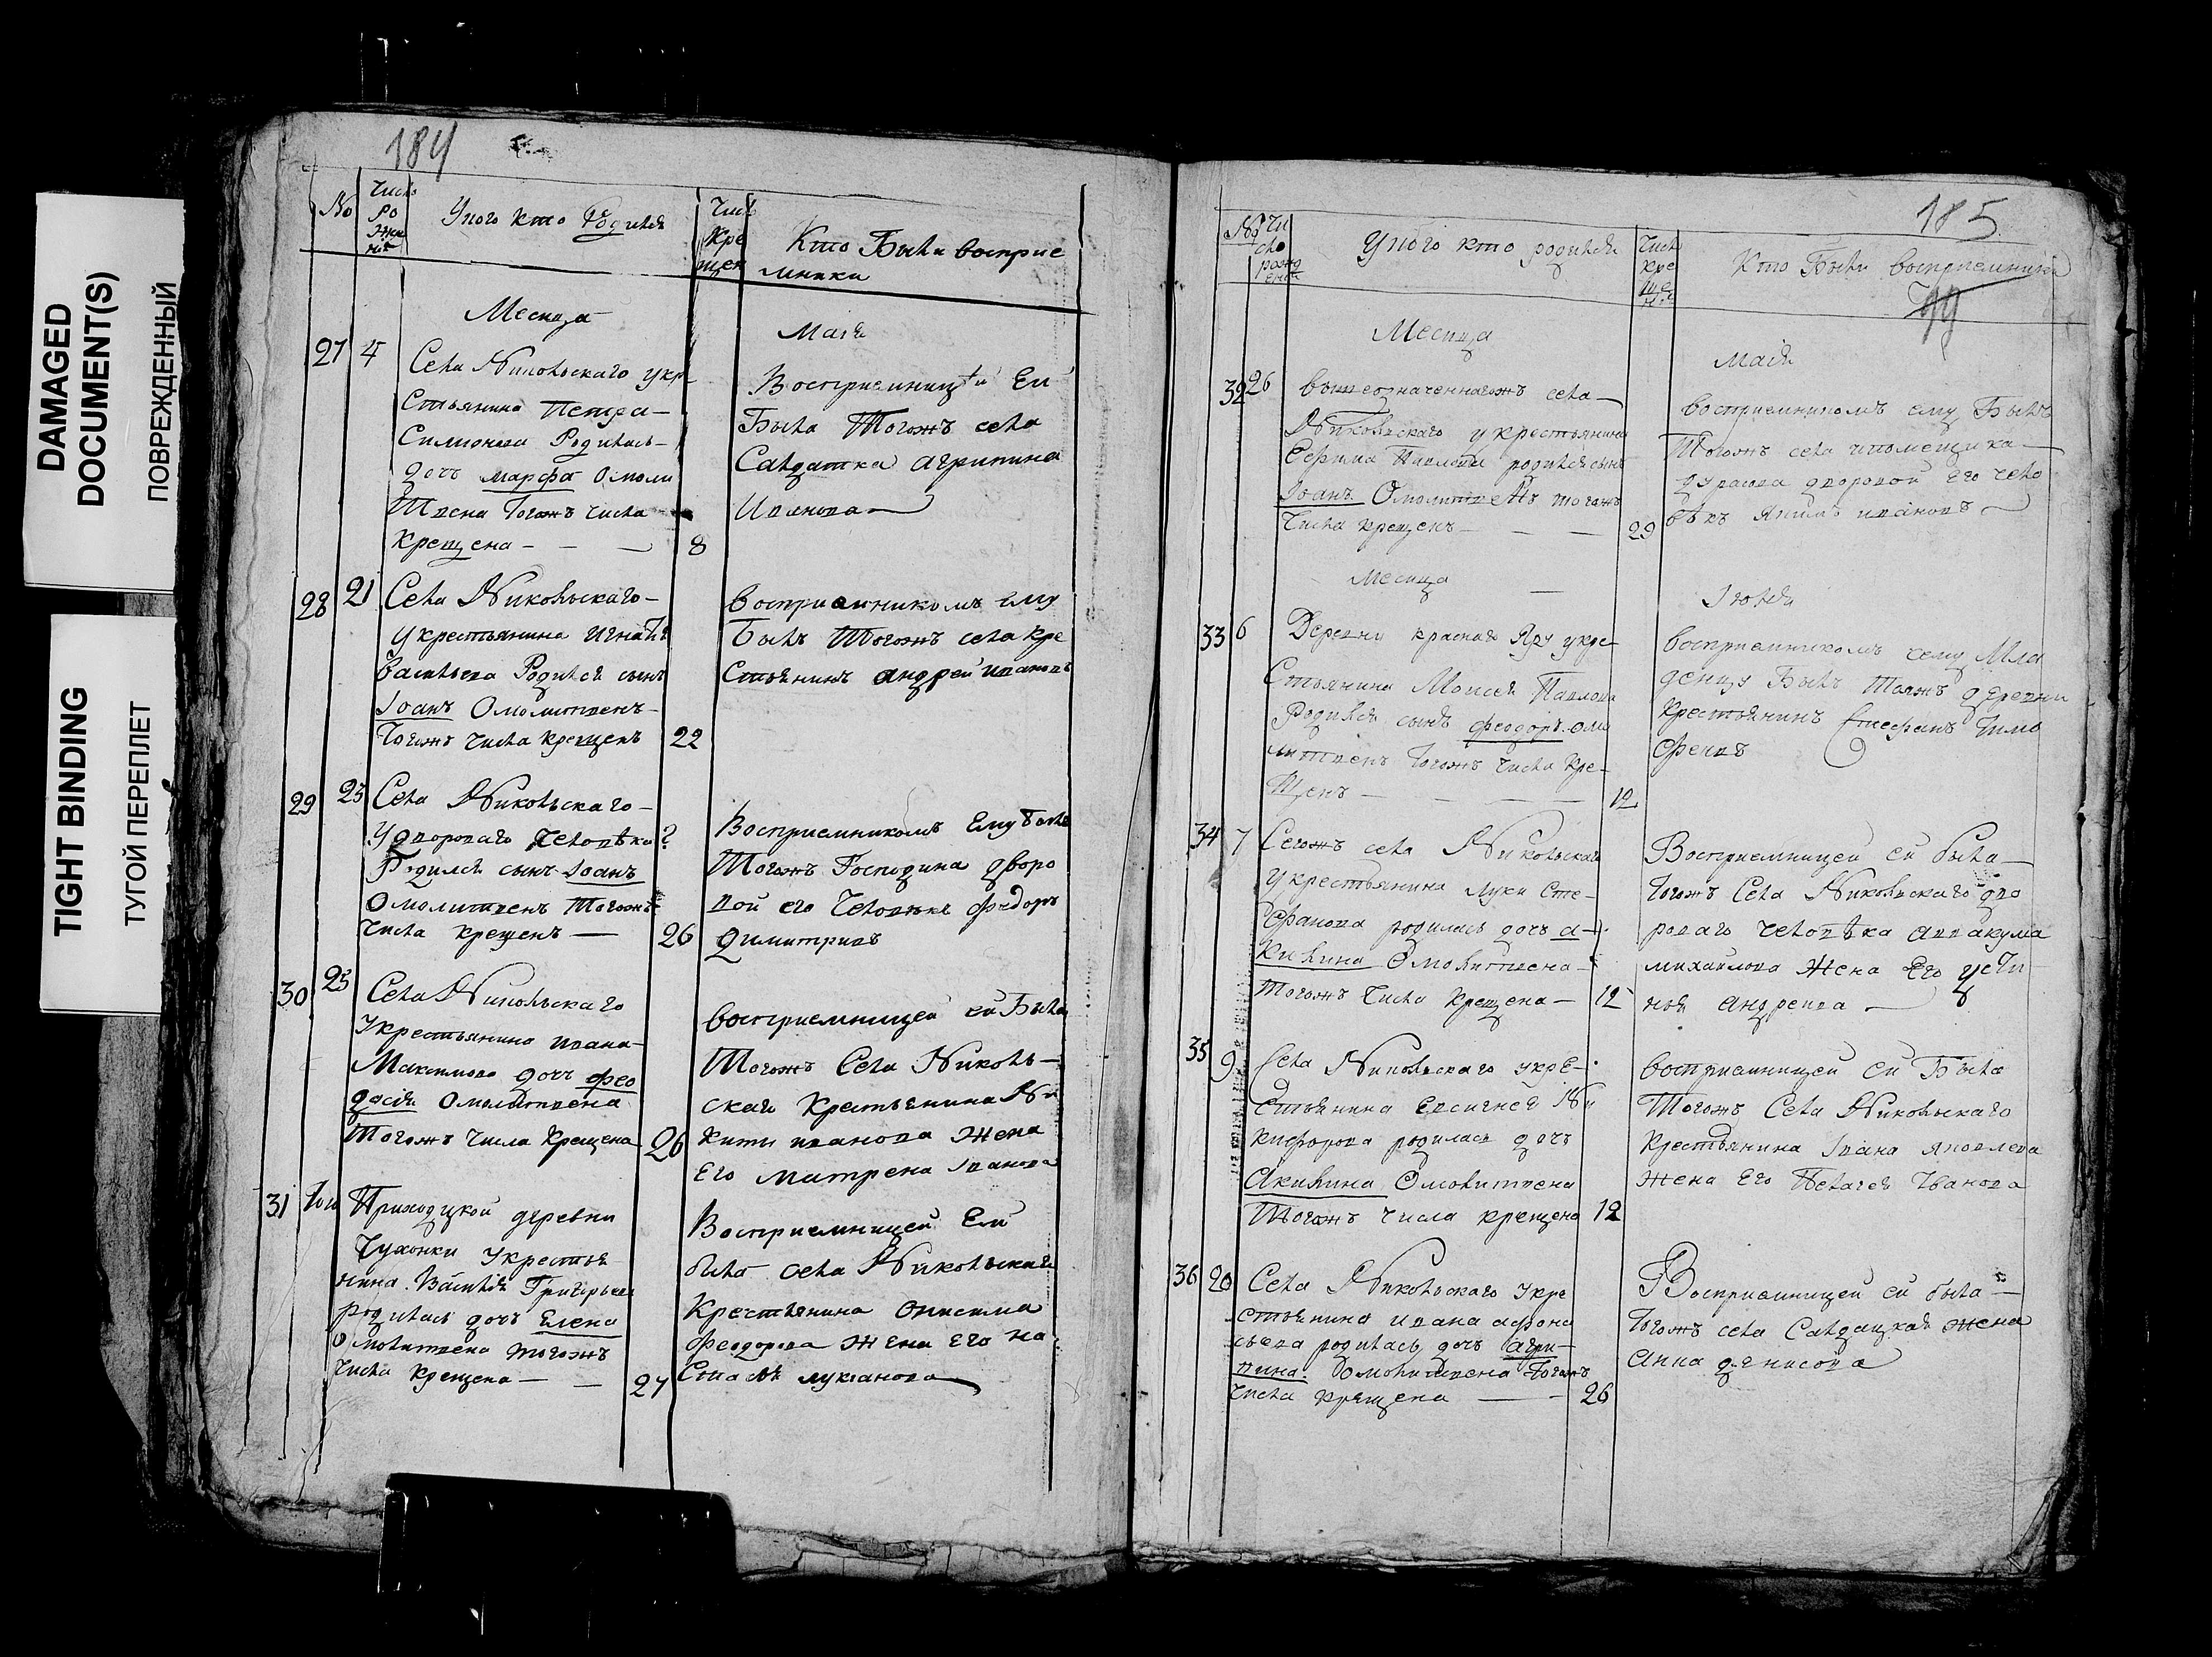 DAMAGED
DOCUMENT(S)
ПОВРЕЖДЕННЫЙ
TIGHT BINDING
ТУГОЙ ПЕРЕПЛЕТ
184
No
Числ
ро
жде
нiе
У кого кто Родился
Числ
Кре
щен
Кто Были восприе
мники
Месяца
Маiя
27 4
Села Никольскаго укр
стьянина Петра
Симионова Родилась
дочь марфа Омоли
твена Тогожъ числа
крещена
8
Восприемницей Ей
Была Тогожъ села
Салдатка агрипина
Иванова
28 21
Села Никольскаго
у крестьянина Игнатiя
васильева Родился сынъ
Iоанъ Омолитвенъ
Тогожъ числа крещенъ
22
восприемникомъ ему
Былъ Тогожъ села кре
стьянинъ андрей ивановъ
29 23
Села Никольскаго
У двороваго человѣка ?
Родился сынъ Iоанъ
Омолитвенъ Тогожъ
числа крещенъ
26
Восприемникомъ Ему былъ
Тогожъ Господина дворо
вой его человѣкъ федоръ
Димитрiвъ
30 23
Села Никольскаго
У крестьянина ивана
Максимова дочь фео
досiя Омолитвена
Тогожъ числа крещена
26
восприемницей ей Была
Тогожъ Села Николь
скаго крестьянина Ни
киты иванова Жена
Его матрена Iванова
31 того
Приходцкой деревни
Чухонки У крестья
нина Васiлiя Григорьева
родилась дочь Елена
Омолитвена тогожъ
числа крещена
27
Восприемницей Ей
была села Никольскаго
Крестьянина Онисима
феодорова Жена Его На
стасья лукiанова
185
No
Чи
сло
рожд
енiя
У кого кто родился
Числ
кре
ще
нiя
Кто Были восприемники
99
Месяца
Маiя
32 26
вышеозначеннагожъ села
Никольскаго у крестьянина
Ефима Павлова родился сынъ
Iоанъ Омолитвенъ тогожъ
Числа крещенъ
29
восприемникомъ ему Былъ
Тогожъ села помещика
дурасова дворовой Его чело
вѣкъ Якимъ ивановъ
Месяца
Iюня
33 6
Деревни красной Яру у кре
стьянина Моисея Павлова
Родился сынъ феодоръ омо
литвенъ Тогожъ числа Кре
щенъ
12
восприемникомъ сему Мла
денцу Былъ Тояжъ деревни
Крестьянинъ Стефанъ Тимо
феевъ
34 7
Сегожъ села Никольскаго
У крестьянина луки Сте
фанова родилась дочь а
килина Омолитвена
Тогожъ числа крещена
12
Восприемницей ей была
Тогожъ Села Никольскаго дво
роваго человѣка аввакума
михайлова Жена Его усти
нья андреева
35 9
Села Никольскаго у кре
стьянина Евсигнея Ни
кифорова родилась дочь
Акилина Омолитвена
Тогожъ числа крещена
12
восприемницей ей Была
Тогожъ Села Никольскаго
крестьянина Iвана яковлева
Жена Его Пелагея Iванова
36 20
Села Никольскаго У кре
стьянина ивана афона
сьева родилась дочь агри
пина Омолитвена Тогожъ
числа крещена
26
Восприемницей ей была
Тогожъ села Салдацкая жена
Анна денисова